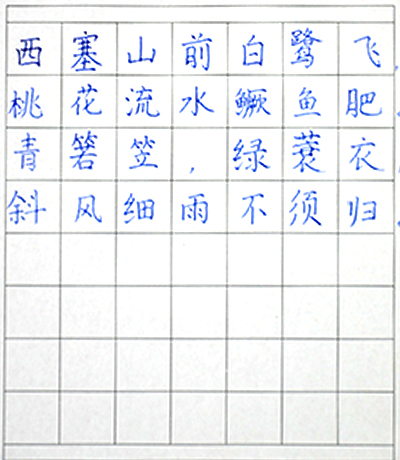 西塞山前白鹭飞，
桃花流水鳜鱼肥。
青箬笠，绿蓑衣，
斜风细雨不须归。